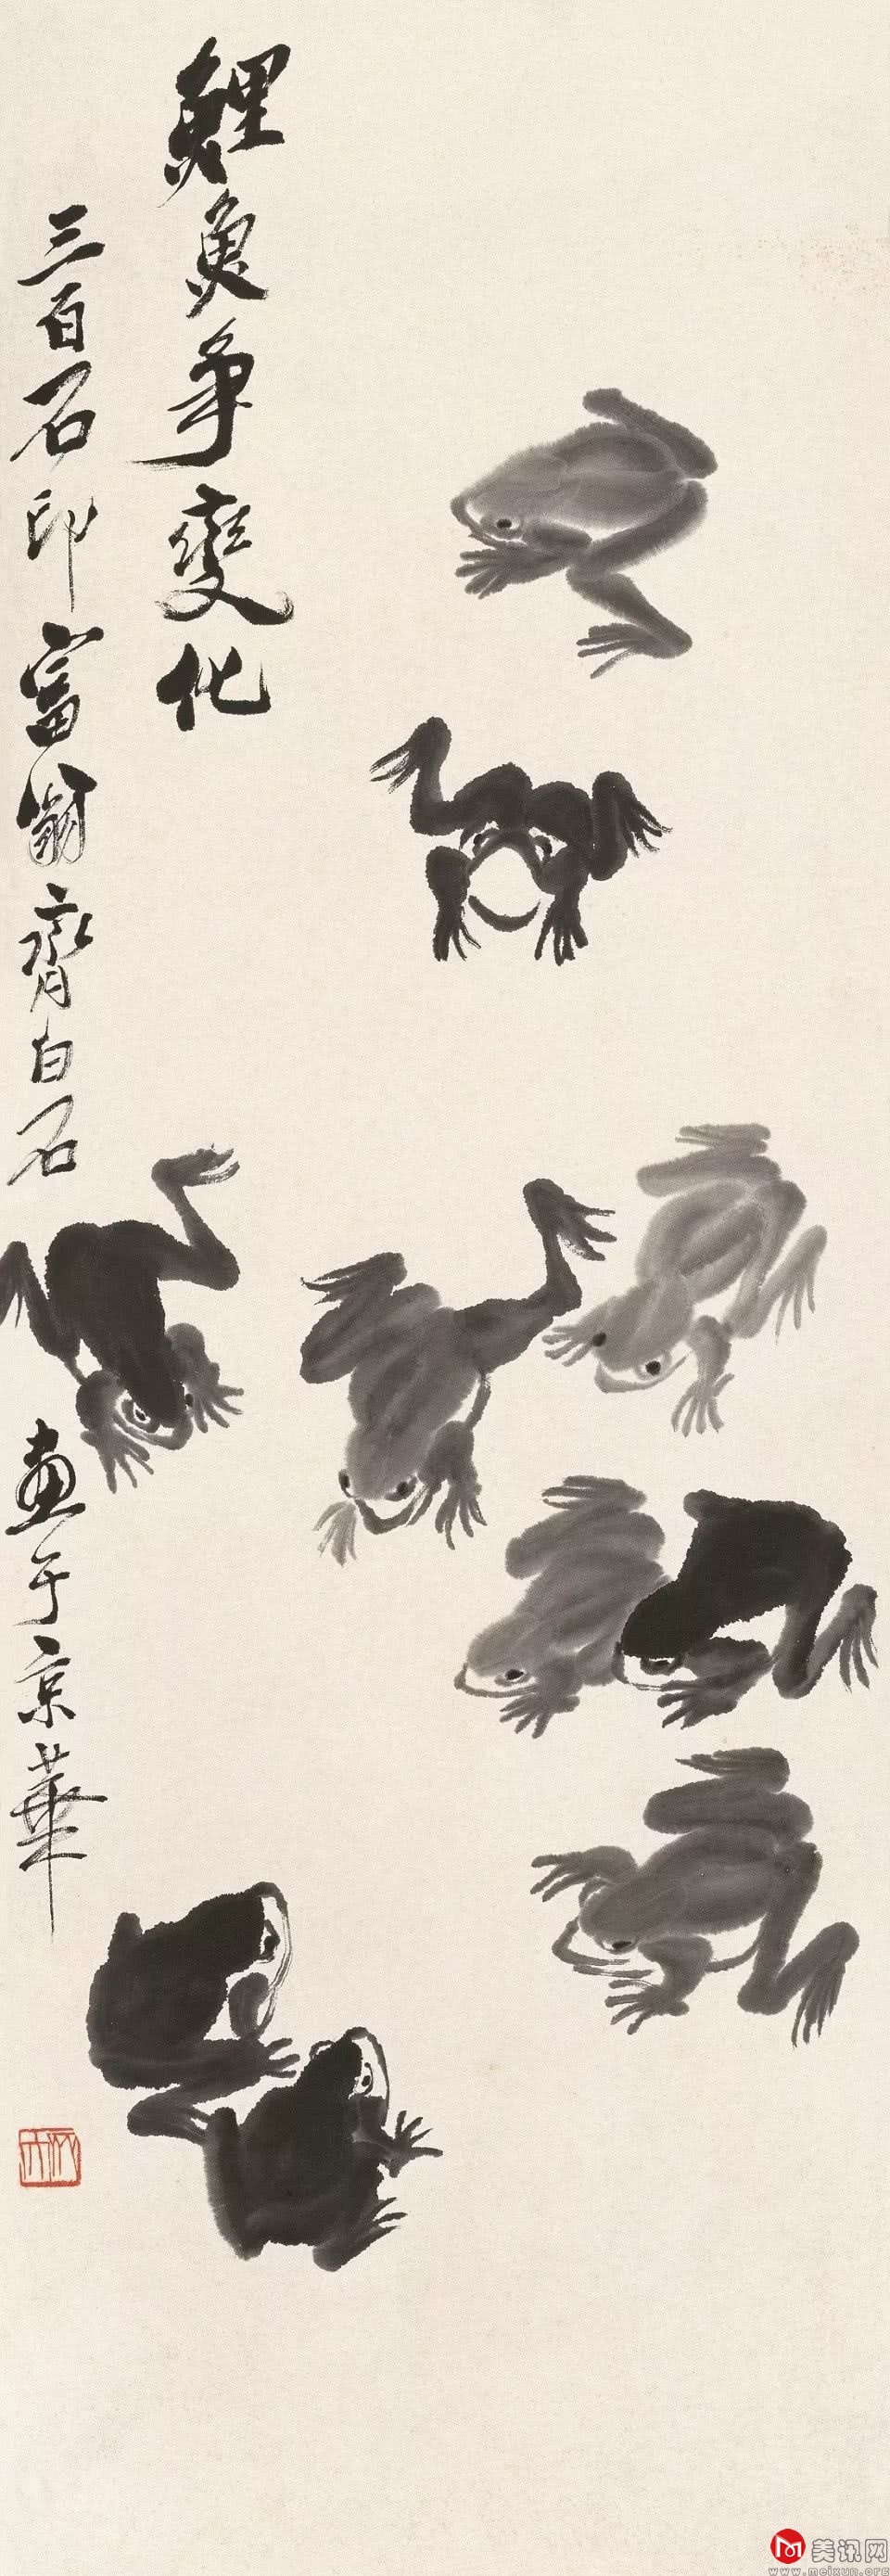 鯉魚爭變化
三百石印富翁齊白石
畫于京華
美讯网
www.meixun.org